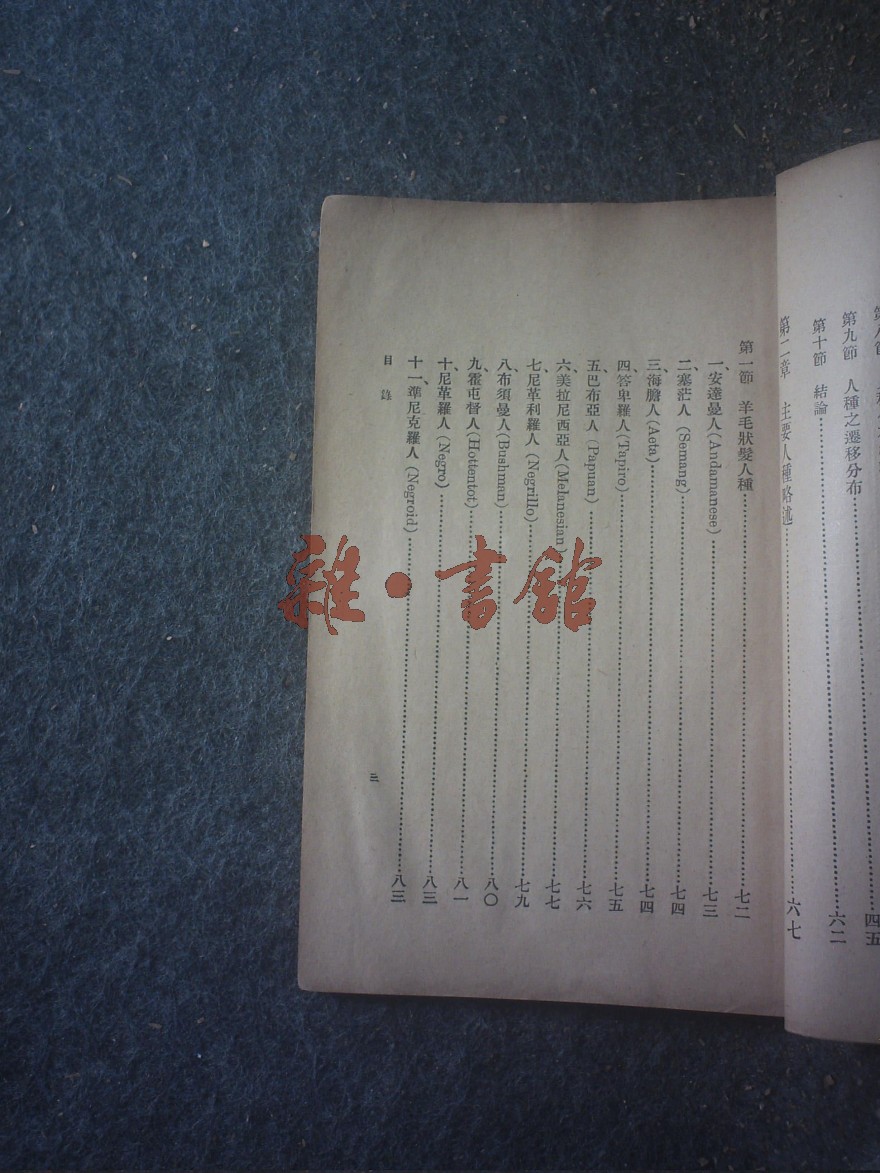 第九節　人種之遷移分布………四五
第十節　結論………六二
第二章　主要人種略述………六七
第一節　羊毛狀髮人種………七二
一、安達曼人(Andamanese)………七三
二、塞茫人(Semang)………七四
三、海膽人(Aeta)………七四
四、答卑羅人(Tapiro)………七五
五、巴布亞人(Papuan)………七六
六、美拉尼西亞人(Melanesian)………七七
七、尼革利羅人(Negrillo)………七九
八、布須曼人(Bushman)………八〇
九、霍屯督人(Hottentot)………八一
十、尼革羅人(Negro)………八三
十一、準尼克羅人(Negroid)………八三
目錄
三
雜·書館